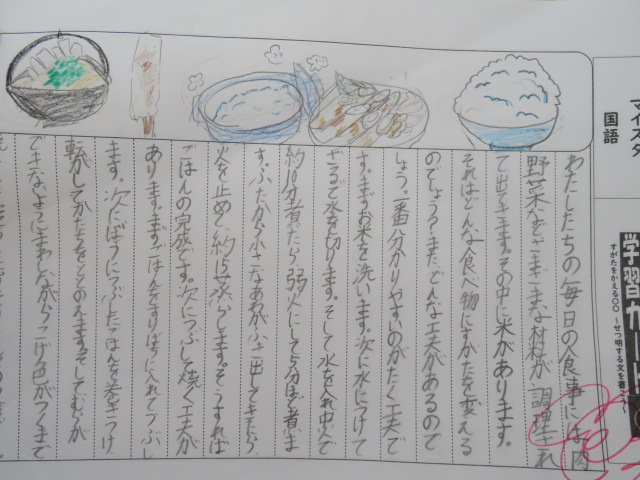 マイスタ
国語
学習カード
すがたをかえる〇〇 ～せつ明する文を書こう～
わたしたちの毎日の食事には、肉
野菜などさまざまな材料が調理され
て出てきます。その中に米があります。
それはどんな食べ物にすがたを変える
のでしょう？また、どんな工夫があるので
しょう。一番分かりやすいのがたく工夫で
す。まずお米を洗います。次に水につけて
ざるで水を切ります。そして水を入れ中火で
約10分煮たら弱火にして5分ほど煮ま
す。ふたから小さなあわがふき出してきたら、
火を止めて、約15分蒸らします。そうすれば
ごはんの完成です。次につぶして焼く工夫が
あります。まずごはんをすりばちに入れてつぶし
ます。次にぼうにつぶしたごはんを巻きつけ、
転がしてかたちをととのえます。そしてむらが
できないようにまわしながらこげ色がつくまで